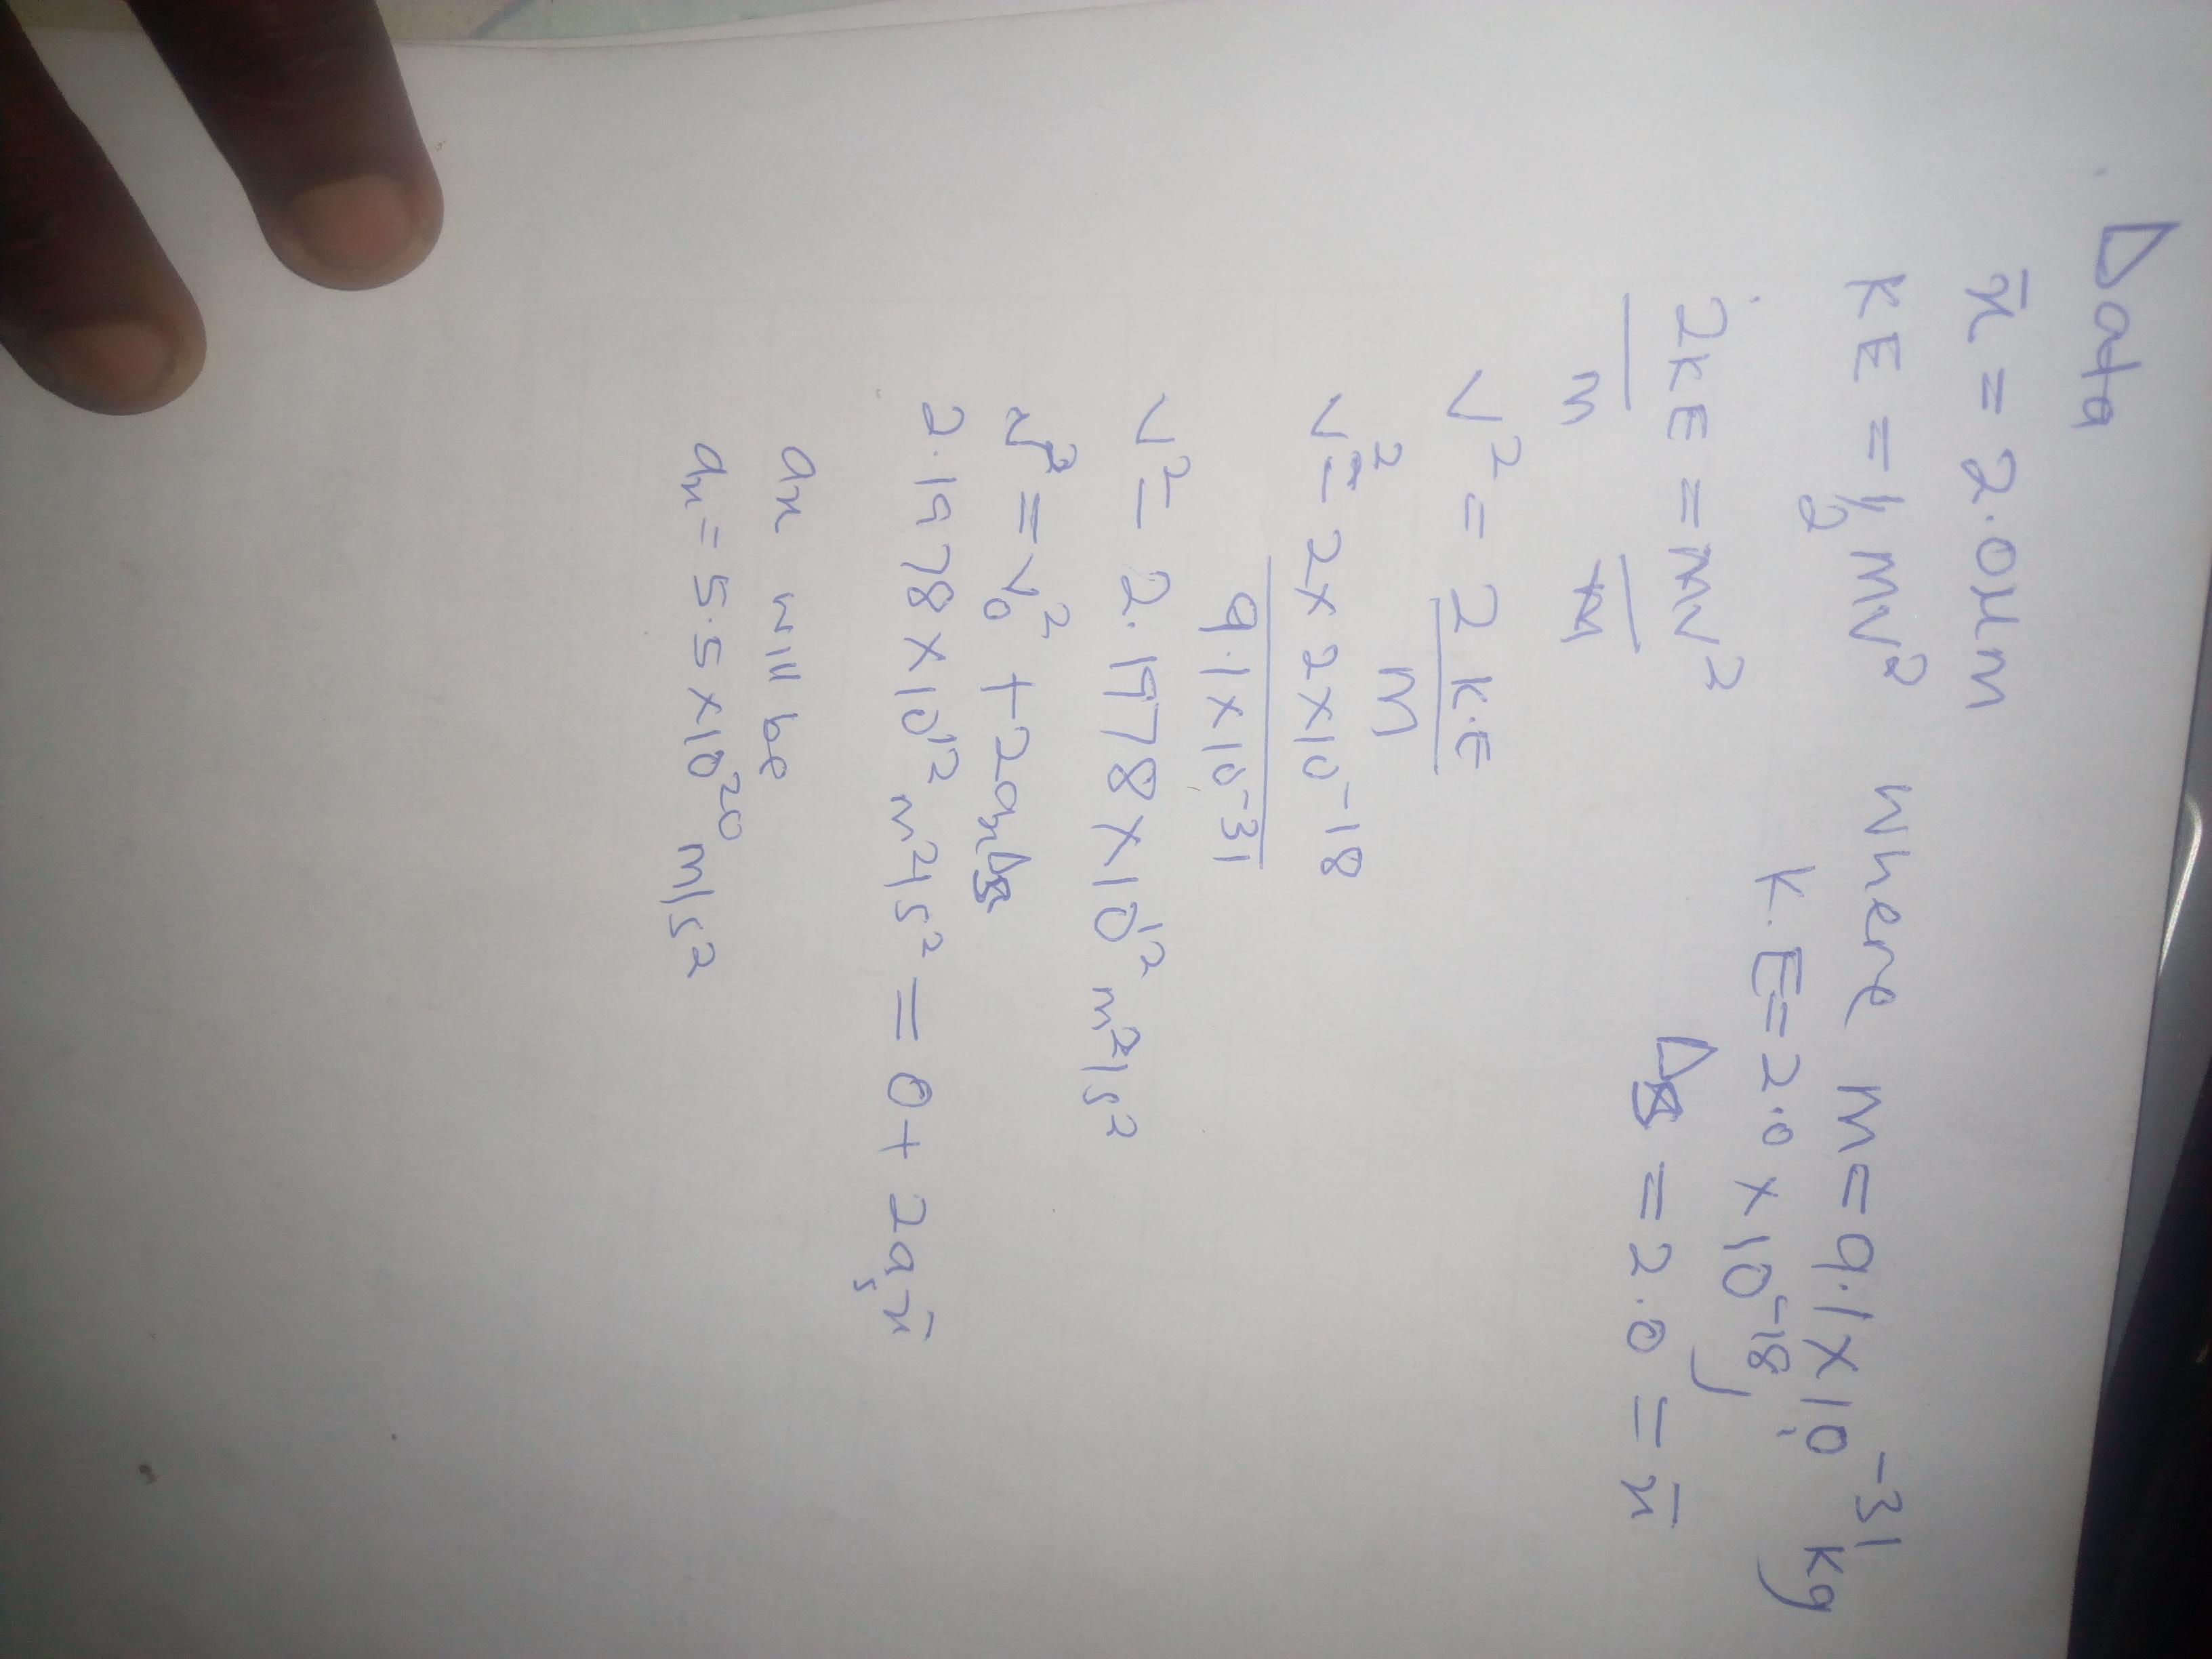 Data
x̄ = 2.0μm
KE = ½ mv² where m = 9.1 × 10⁻³¹ kg
K.E = 2.0 × 10⁻¹⁸ J
2KE = mv²
m m
Δx = 2.0 = x̄
v² = 2K.E
m
v² = 2 × 2 × 10⁻¹⁸
9.1 × 10⁻³¹
v² = 2.1978 × 10¹² m²/s²
v² = v₀² + 2axΔx
2.1978 × 10¹² m²/s² = 0 + 2aₛx̄
ax will be
ax = 5.5 × 10²⁰ m/s²